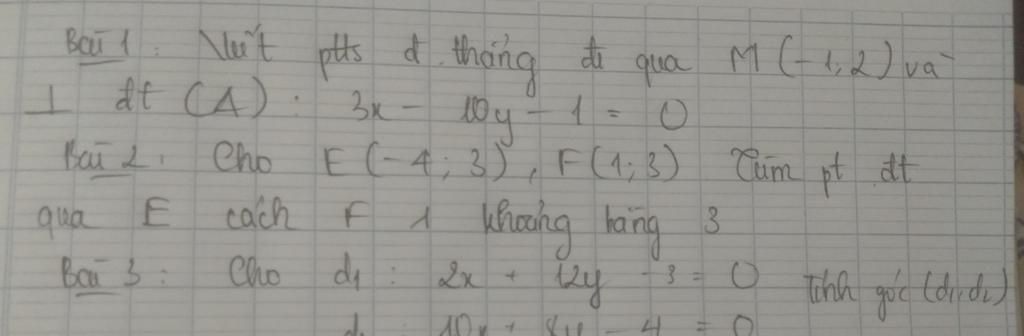 Bài 1: Viết ptts đ.thẳng đi qua M(-1,2) và
⊥ đt (Δ): 3x - 10y - 1 = 0
Bài 2. Cho E(-4;3), F(1;3) Tìm pt đt
qua E cách F 1 khoảng bằng 3
Bài 3: Cho d₁: 2x + 12y - 3 = 0 Tính góc (d₁,d₂)
10x + 8y - 4 = 0